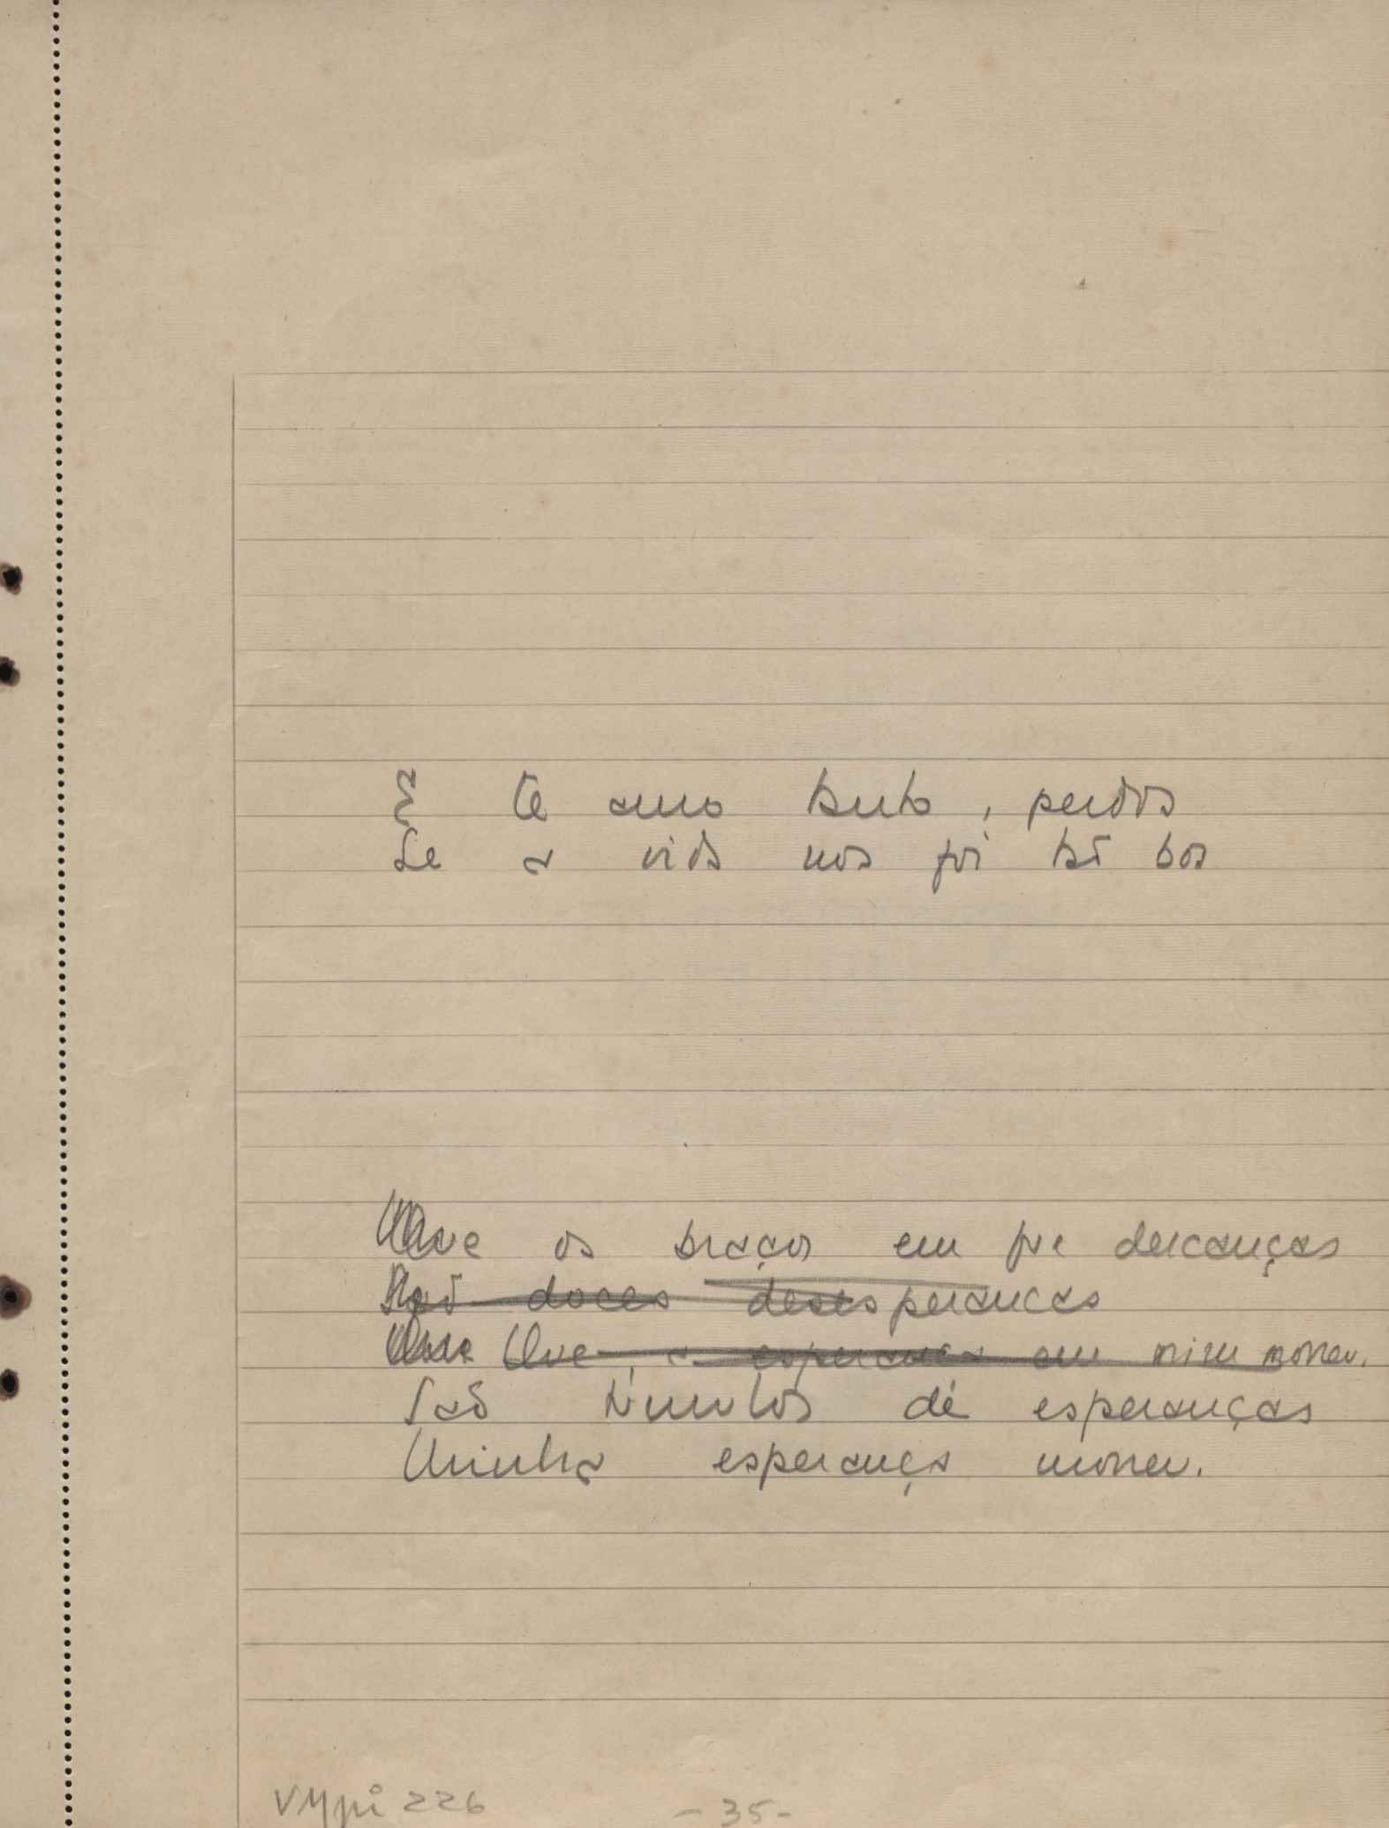 E te amo tanto, perdoa
Se a vida nos foi tão boa
Que os braços em que descanças
São doces desesperancas
Que a esperança em mim morreu.
São túmulos de esperanças
Minha esperança morreu.
VMpi 226
-35-